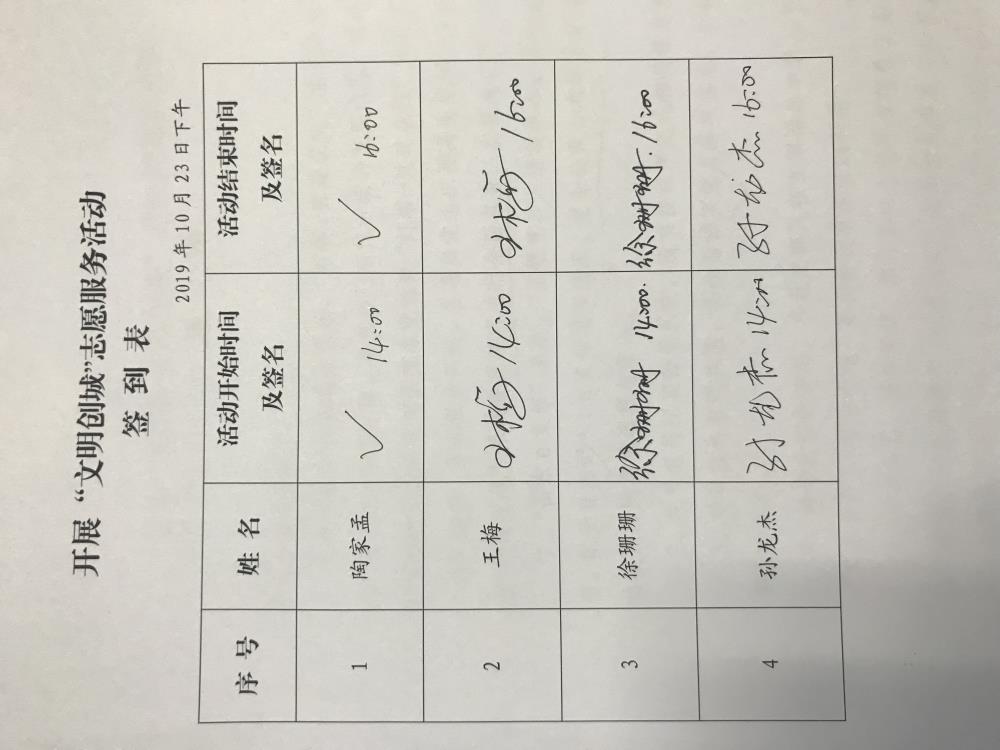 开展“文明创城”志愿服务活动
签 到 表
2019 年 10 月 23 日下午
序 号 姓 名 活动开始时间及签名 活动结束时间及签名
1 陶家孟 ✓ 14:00 ✓ 16:00
2 王梅 王梅 14:00 王梅 16:00
3 徐珊珊 徐珊珊 14:00. 徐珊珊. 16:00
4 孙龙杰 孙龙杰 14:00 孙龙杰 16:00